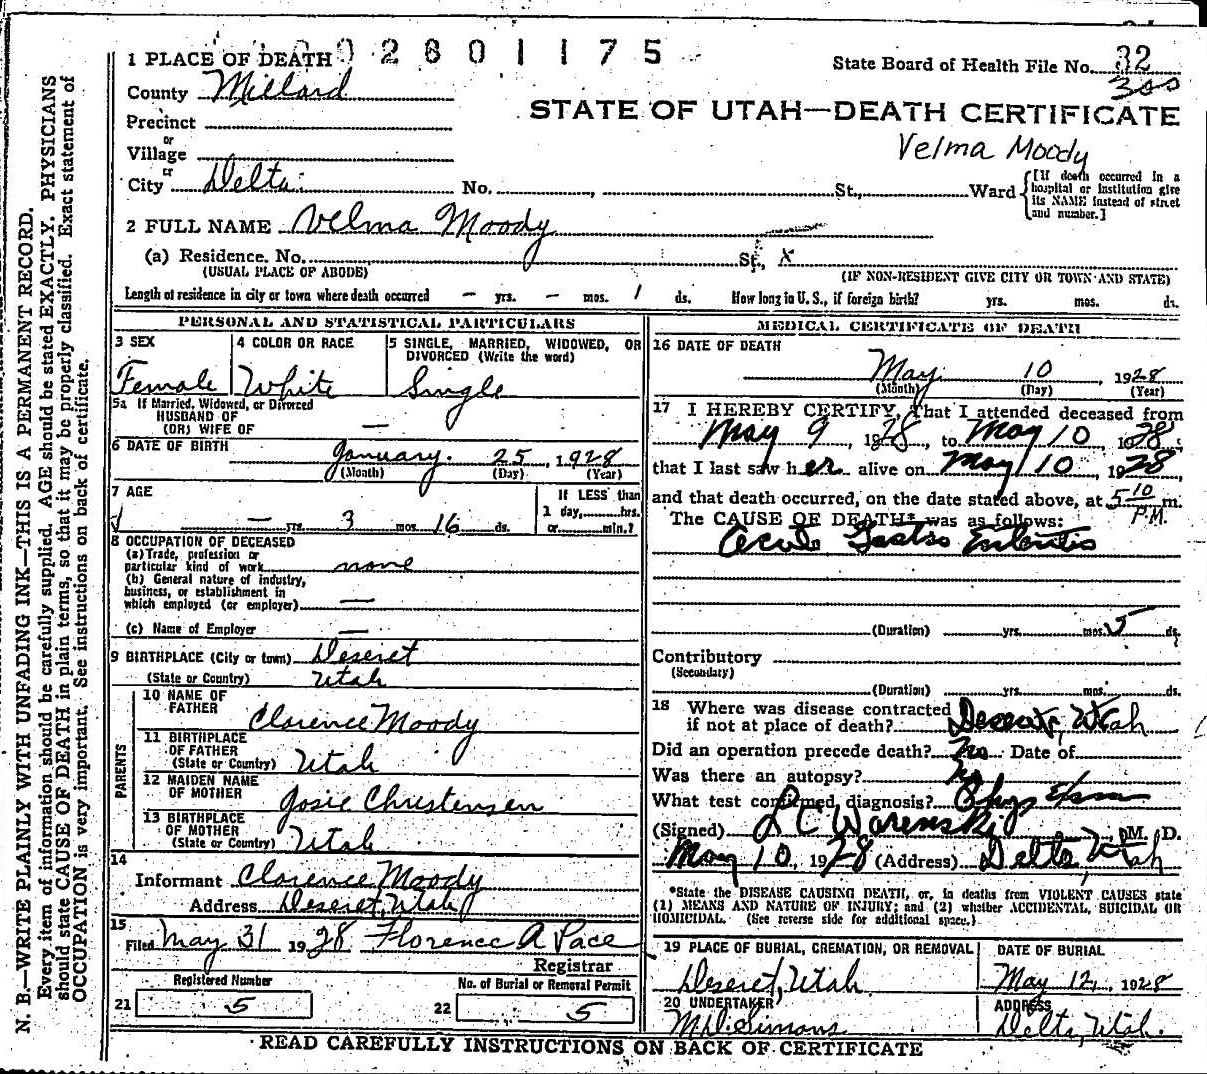 002801175
1 PLACE OF DEATH
State Board of Health File No. 32
300
County Millard
STATE OF UTAH—DEATH CERTIFICATE
Precinct
Velma Moody
or
Village
or
City Delta No. , St., Ward
[If death occurred in a hospital or institution give its NAME instead of street and number.]
2 FULL NAME Velma Moody
(a) Residence. No. St., X
(USUAL PLACE OF ABODE) (IF NON-RESIDENT GIVE CITY OR TOWN AND STATE)
Length of residence in city or town where death occurred — yrs. — mos. 1 ds. How long in U. S., if foreign birth? yrs. mos. ds.
PERSONAL AND STATISTICAL PARTICULARS
3 SEX 4 COLOR OR RACE 5 SINGLE, MARRIED, WIDOWED, OR
DIVORCED (Write the word)
Female White Single
5a If Married, Widowed, or Divorced
HUSBAND OF
(OR) WIFE OF —
6 DATE OF BIRTH January 25, 1928
(Month) (Day) (Year)
7 AGE If LESS than
1 day, hrs.
— yrs. 3 mos. 16 ds. or min.?
8 OCCUPATION OF DECEASED
(a) Trade, profession or
particular kind of work none
(b) General nature of industry,
business, or establishment in
which employed (or employer) —
(c) Name of Employer —
9 BIRTHPLACE (City or town) Deseret
(State or Country) Utah
PARENTS
10 NAME OF
FATHER Clarence Moody
11 BIRTHPLACE
OF FATHER
(State or Country) Utah
12 MAIDEN NAME
OF MOTHER Josie Christensen
13 BIRTHPLACE
OF MOTHER
(State or Country) Utah
14
Informant Clarence Moody
Address Deseret, Utah
15
Filed May 31 1928 Florence A Pace
Registrar
Registered Number No. of Burial or Removal Permit
21 5 22 5
MEDICAL CERTIFICATE OF DEATH
16 DATE OF DEATH
May 10, 1928
(Month) (Day) (Year)
17 I HEREBY CERTIFY, That I attended deceased from
May 9, 1928, to May 10 1928;
that I last saw her alive on May 10, 1928,
and that death occurred, on the date stated above, at 5 10 m.
P.M.
The CAUSE OF DEATH* was as follows:
Acute Gastro Enteritis
(Duration) yrs. mos. 5 ds.
Contributory
(Secondary)
(Duration) yrs. mos. ds.
18 Where was disease contracted
if not at place of death? Deseret, Utah
Did an operation precede death? No Date of
Was there an autopsy? No
What test confirmed diagnosis? Phys Exam
(Signed) L C Warenski, M. D.
May 10, 1928 (Address) Delta, Utah
*State the DISEASE CAUSING DEATH, or, in deaths from VIOLENT CAUSES state
(1) MEANS AND NATURE OF INJURY; and (2) whether ACCIDENTAL, SUICIDAL OR
HOMICIDAL. (See reverse side for additional space.)
19 PLACE OF BURIAL, CREMATION, OR REMOVAL DATE OF BURIAL
Deseret, Utah May 12, 1928
20 UNDERTAKER ADDRESS
M. D. Simons Delta, Utah.
READ CAREFULLY INSTRUCTIONS ON BACK OF CERTIFICATE
N. B.—WRITE PLAINLY WITH UNFADING INK—THIS IS A PERMANENT RECORD.
Every item of information should be carefully supplied. AGE should be stated EXACTLY. PHYSICIANS
should state CAUSE OF DEATH in plain terms, so that it may be properly classified. Exact statement of
OCCUPATION is very important. See instructions on back of certificate.